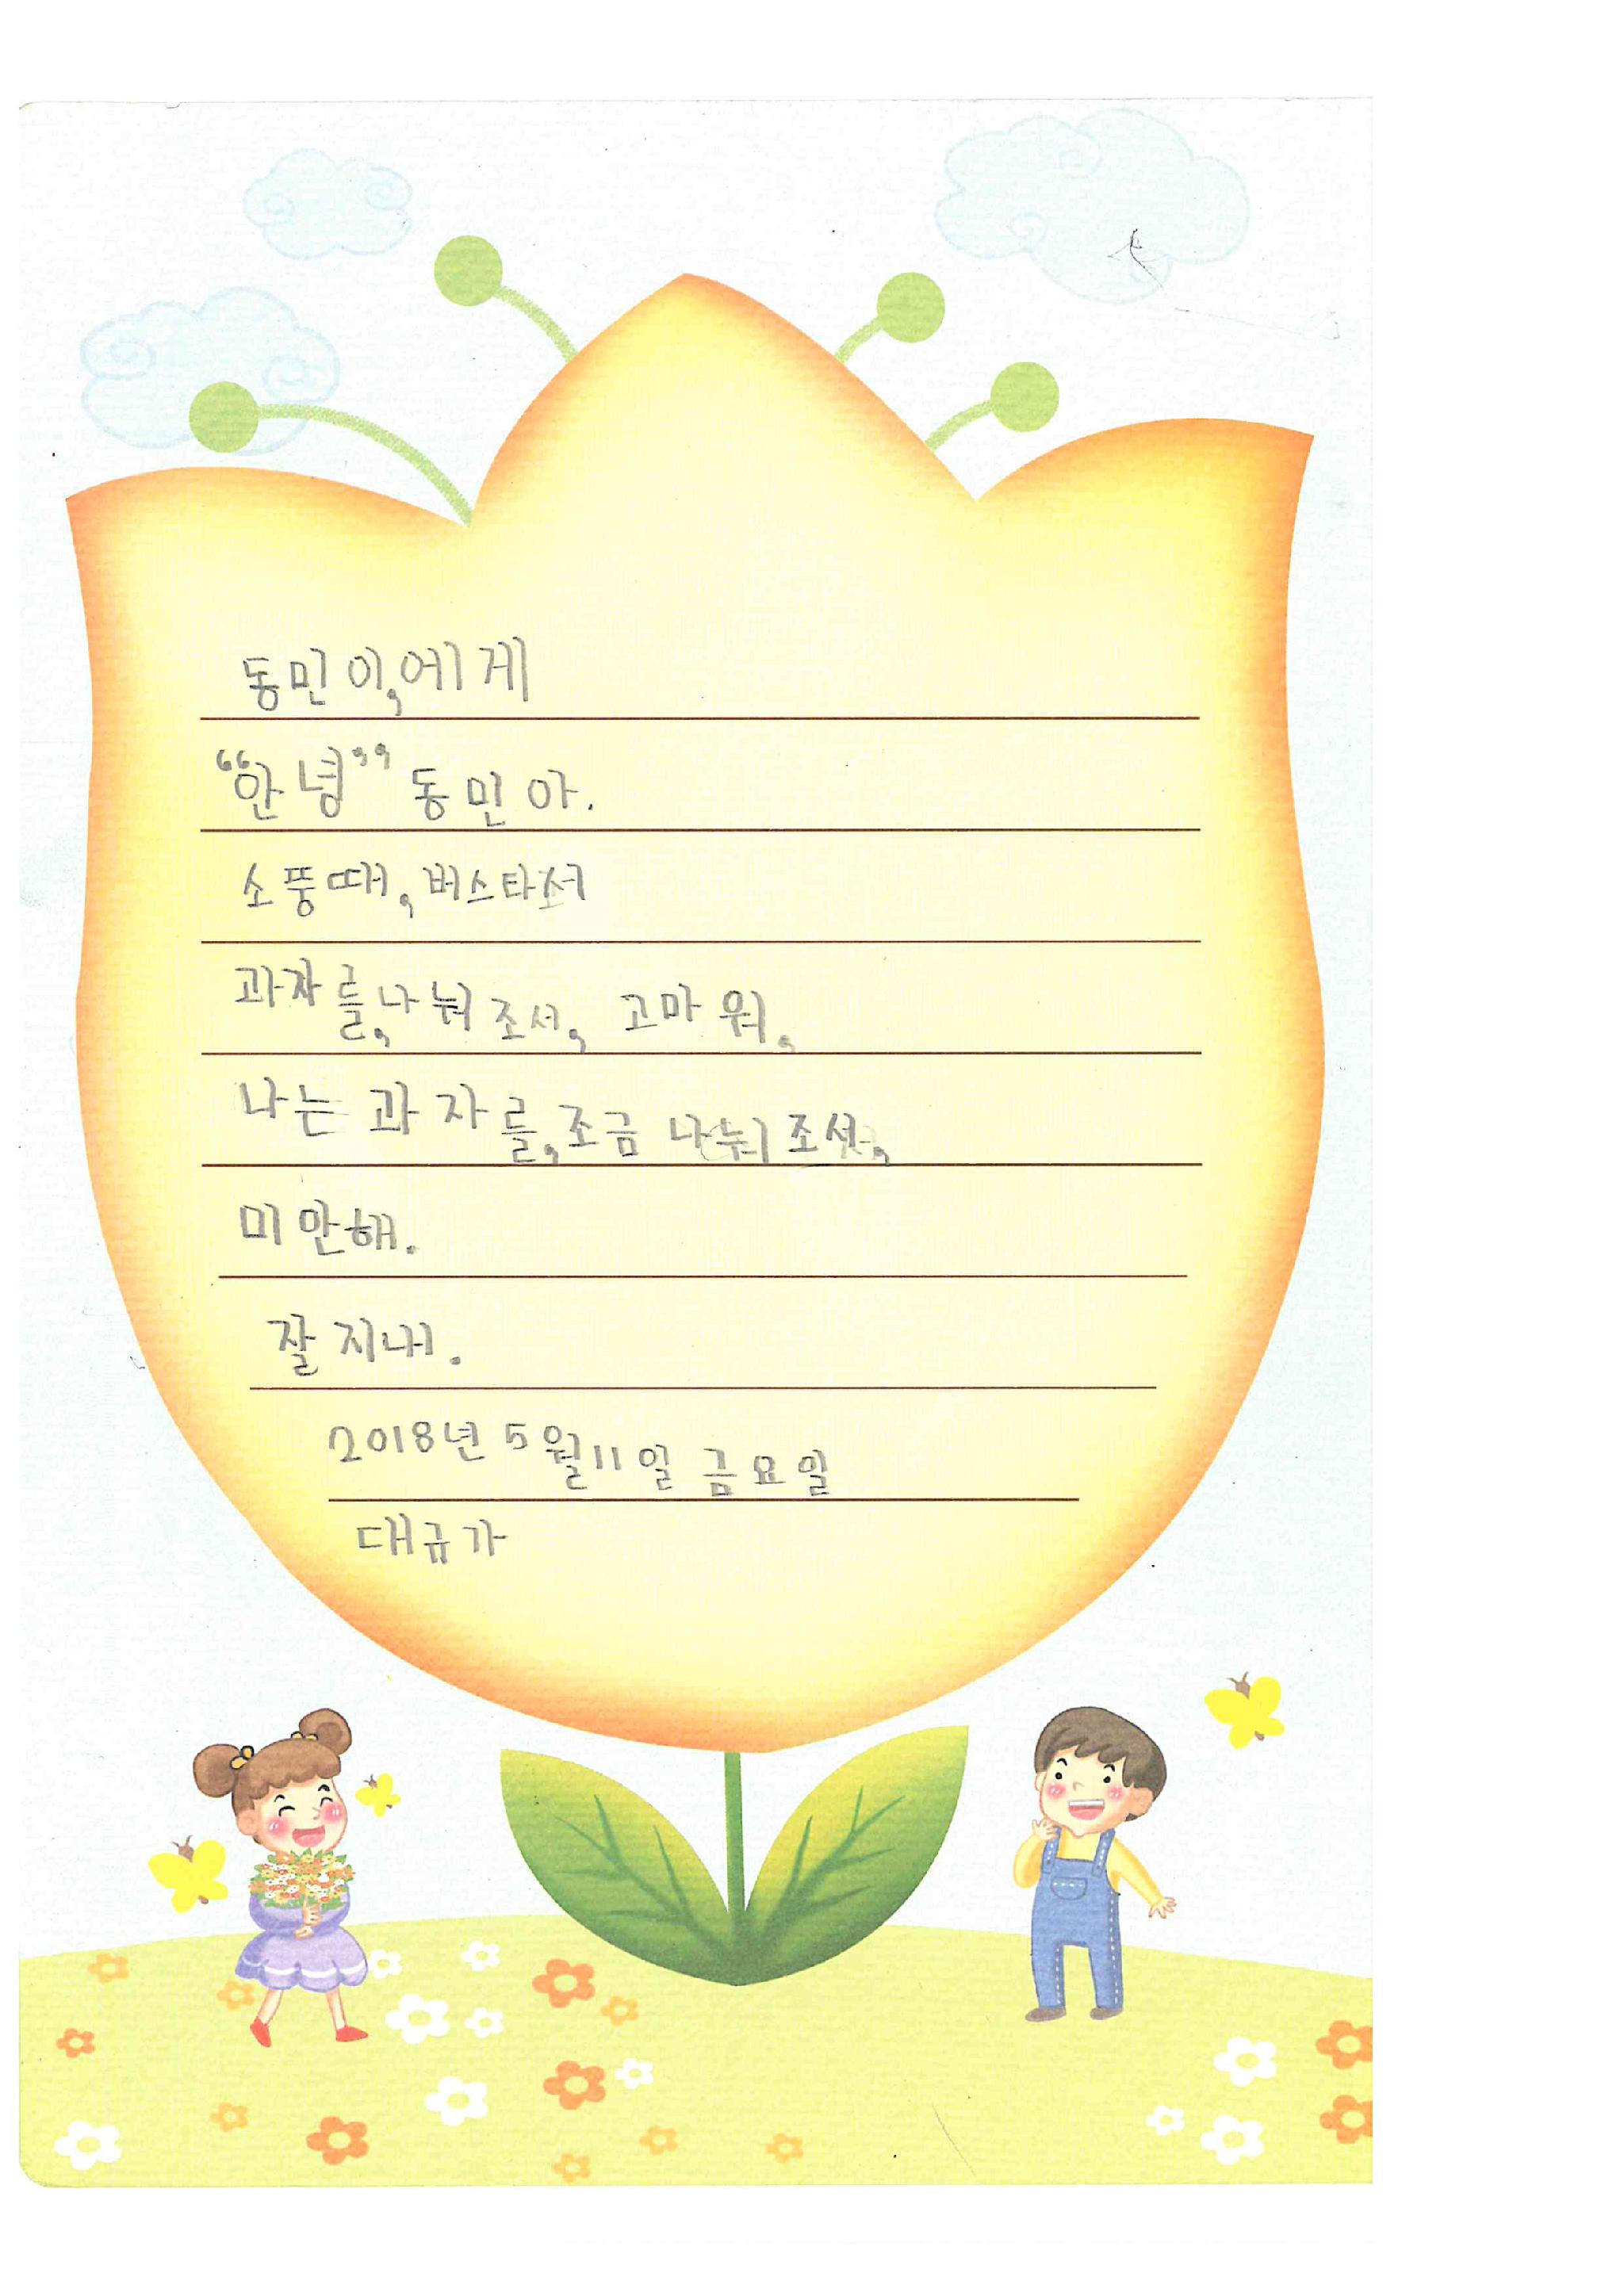 동민이,에게
“안녕” 동민아.
소뚱때, 버스타서
과자를,나눠조서, 고마워,
나는 과자를,조금 나눠조서,
미안해.
잘지내.
2018년 5월11일 금요일
대규가